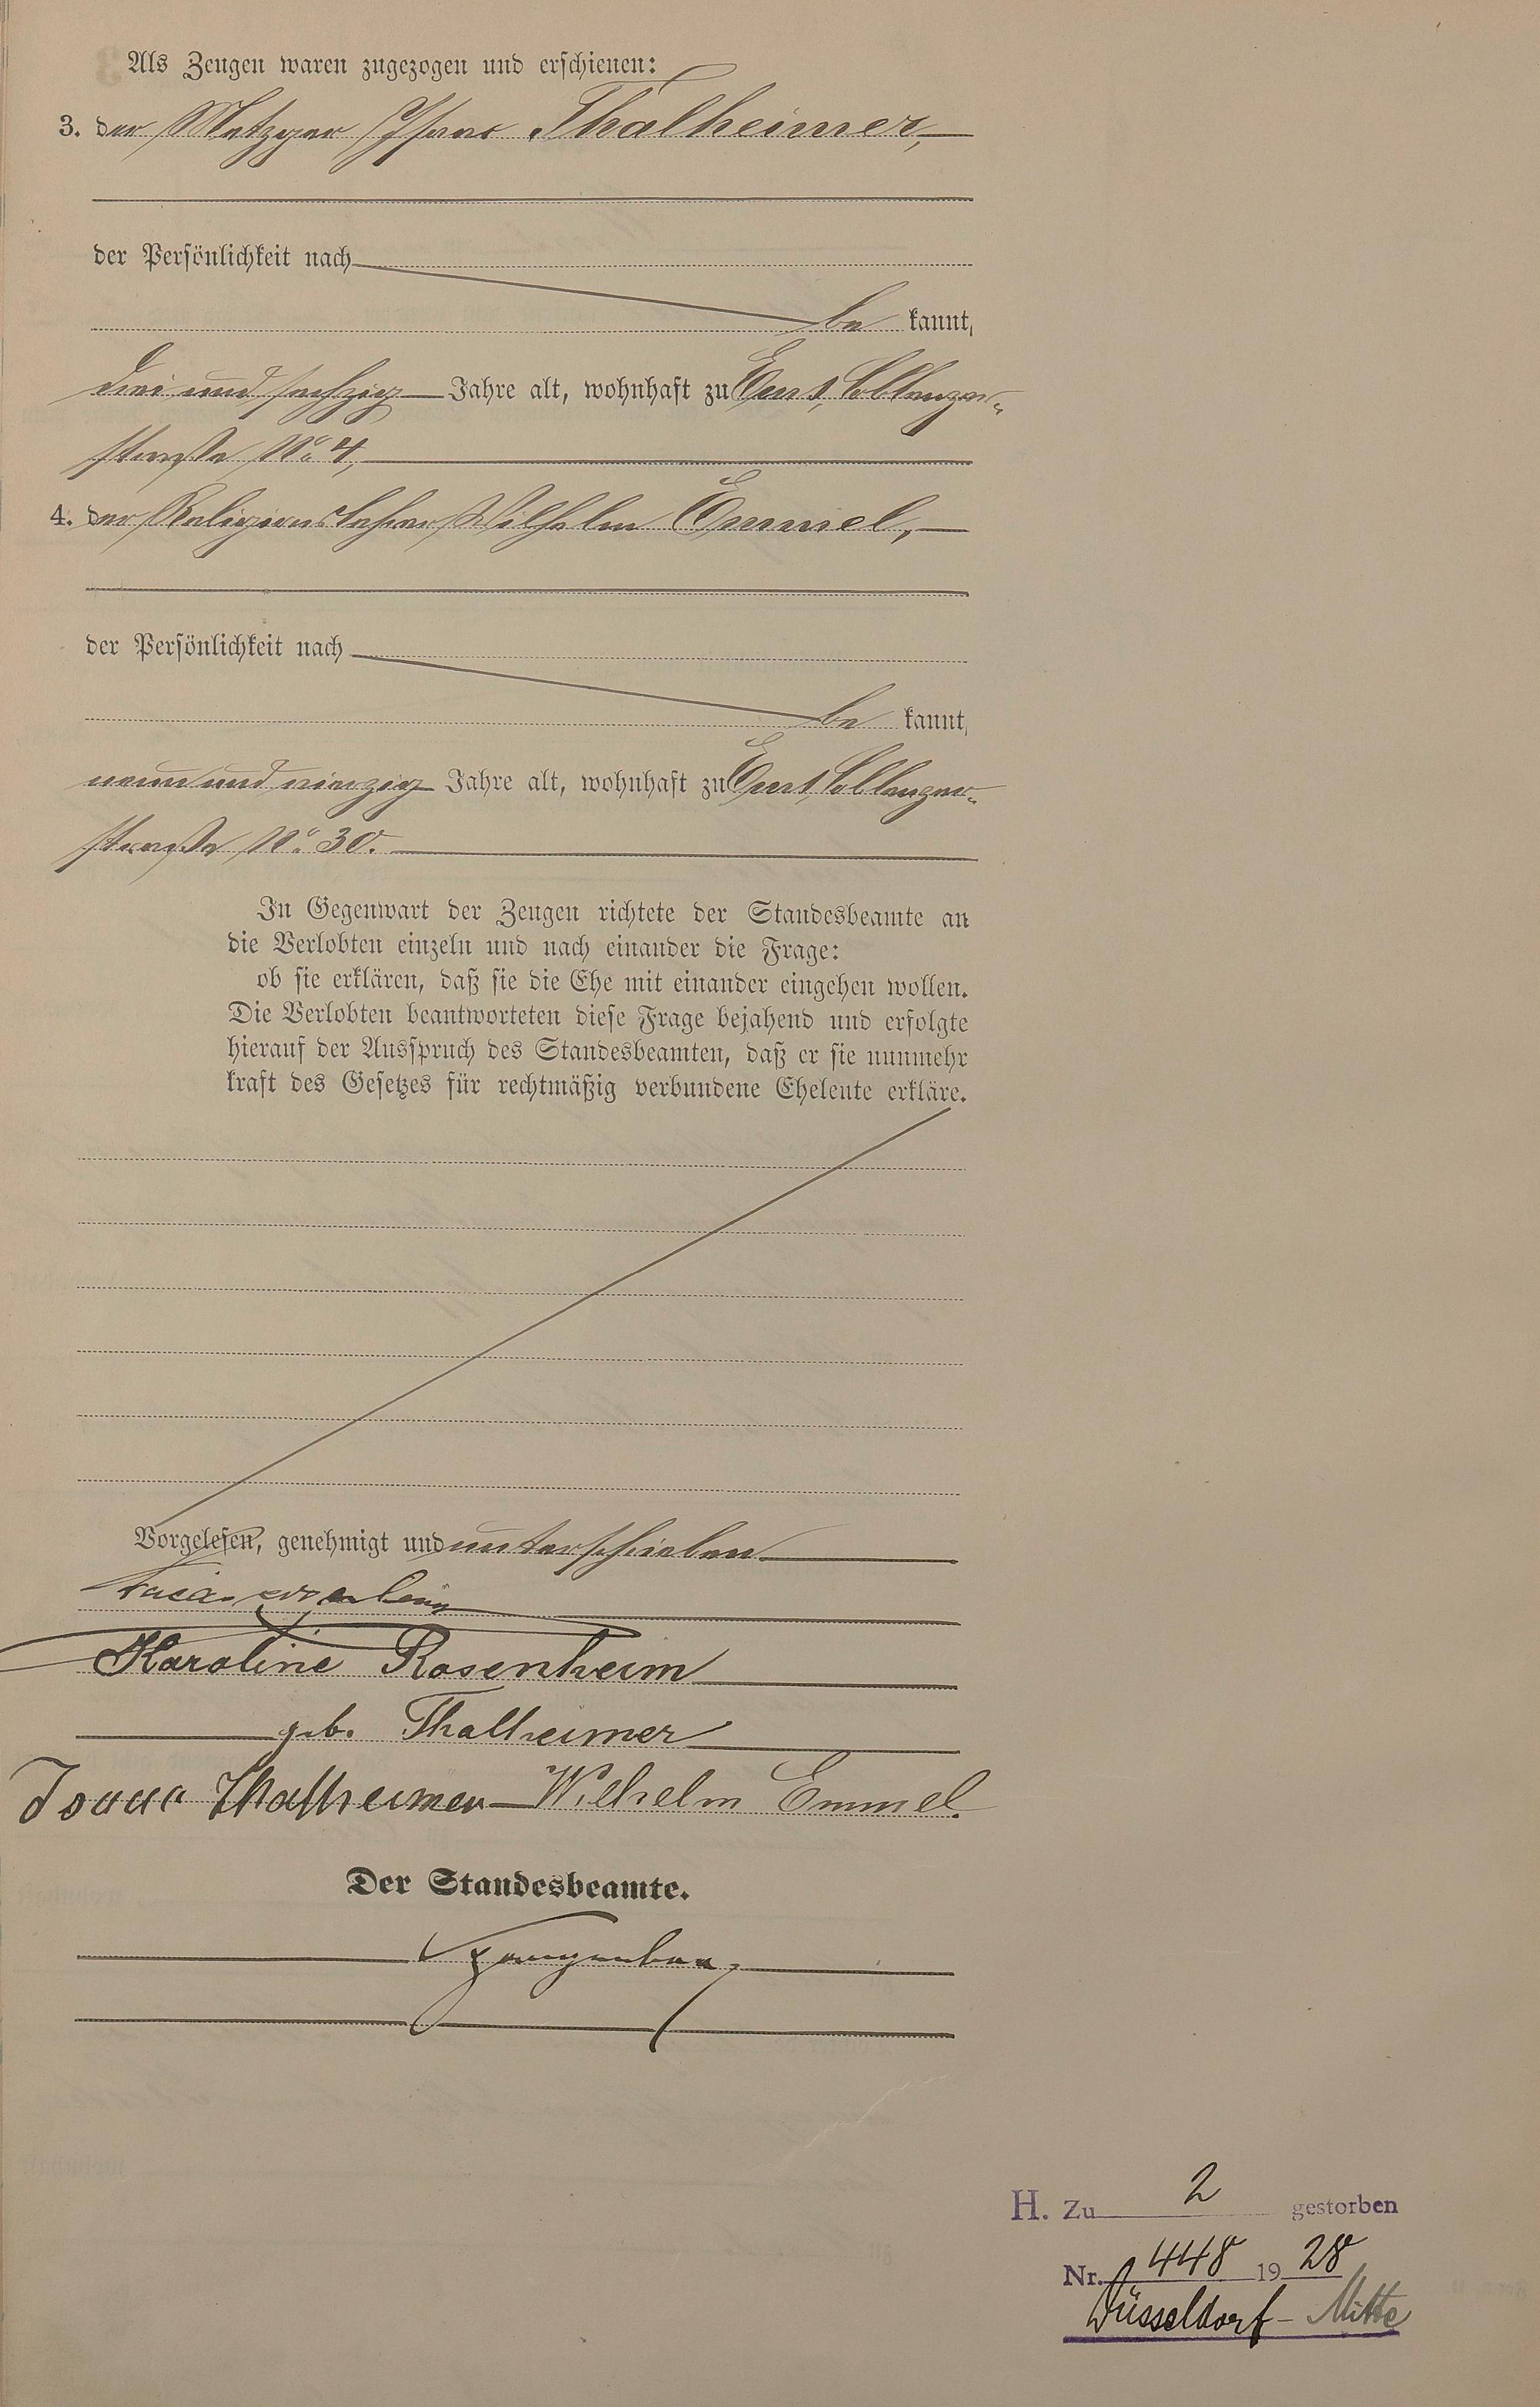 Als Zeugen waren zugezogen und erschienen:
3. der Metzger Isaac Thalheimer,
der Persönlichkeit nach
be kannt,
drei und sechzig Jahre alt, wohnhaft zu Ems, Coblenzer-
straße No. 4,
4. der Religionslehrer Wilhelm Emmel,
der Persönlichkeit nach
be kannt,
neun und vierzig Jahre alt, wohnhaft zu Ems, Coblenzer-
straße No. 30.
In Gegenwart der Zeugen richtete der Standesbeamte an
die Verlobten einzeln und nach einander die Frage:
ob sie erklären, daß sie die Ehe mit einander eingehen wollen.
Die Verlobten beantworteten diese Frage bejahend und erfolgte
hierauf der Ausspruch des Standesbeamten, daß er sie nunmehr
kraft des Gesetzes für rechtmäßig verbundene Eheleute erkläre.
Vorgelesen, genehmigt und unterschrieben
Karoline Rosenheim
geb. Thalheimer
Isaac Thalheimer Wilhelm Emmel.
Der Standesbeamte.
H. Zu 2 gestorben
Nr. 448 1928
Düsseldorf-Mitte